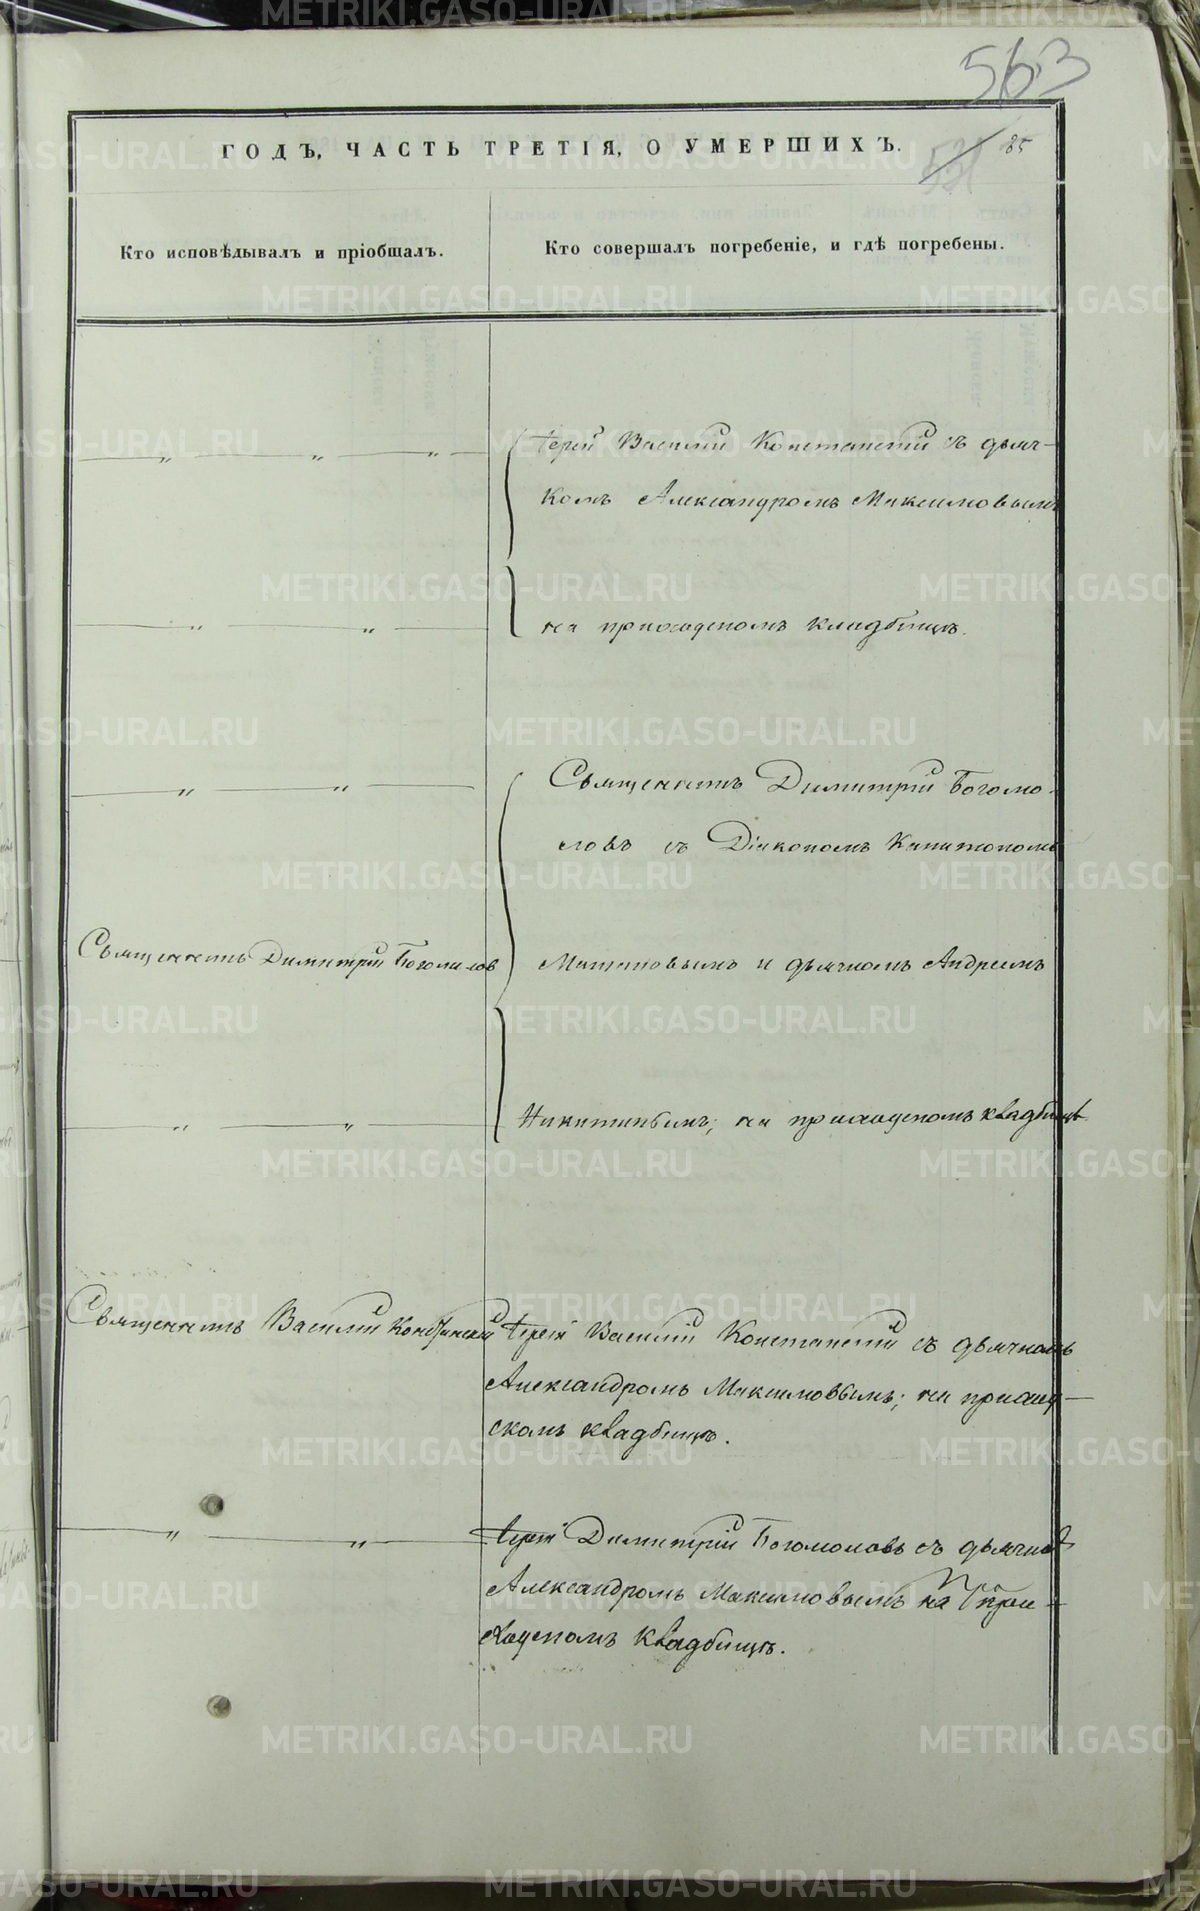 563
ГОДЪ, ЧАСТЬ ТРЕТІЯ, О УМЕРШИХЪ.
531 85
Кто исповѣдывалъ и пріобщалъ.
Кто совершалъ погребеніе, и гдѣ погребены.
— „ — „ — „ —
Іерей Василій Констанскій съ дьяч-
комъ Александромъ Максимовымъ
— „ — „ —
на приходскомъ кладбищѣ.
— „ — „ —
Священникъ Димитрій Богомо-
ловъ съ Діакономъ Капитономъ
Священникъ Димитрій Богомолов
и дьячкомъ Андреемъ
— „ — „
Никитинымъ; на приходскомъ квадбищѣ.
Священникъ Василій
Іерей Василій Констанскій съ дьячкомъ
Александромъ Максимовымъ; на приход-
скомъ квадбищѣ.
— „ — „ —
Іерей Димитрій Богомоловъ съ дьячко
Александромъ Максимовымъ на при-
ходскомъ квадбищѣ.
— „
METRIKI.GASO-URAL.RU